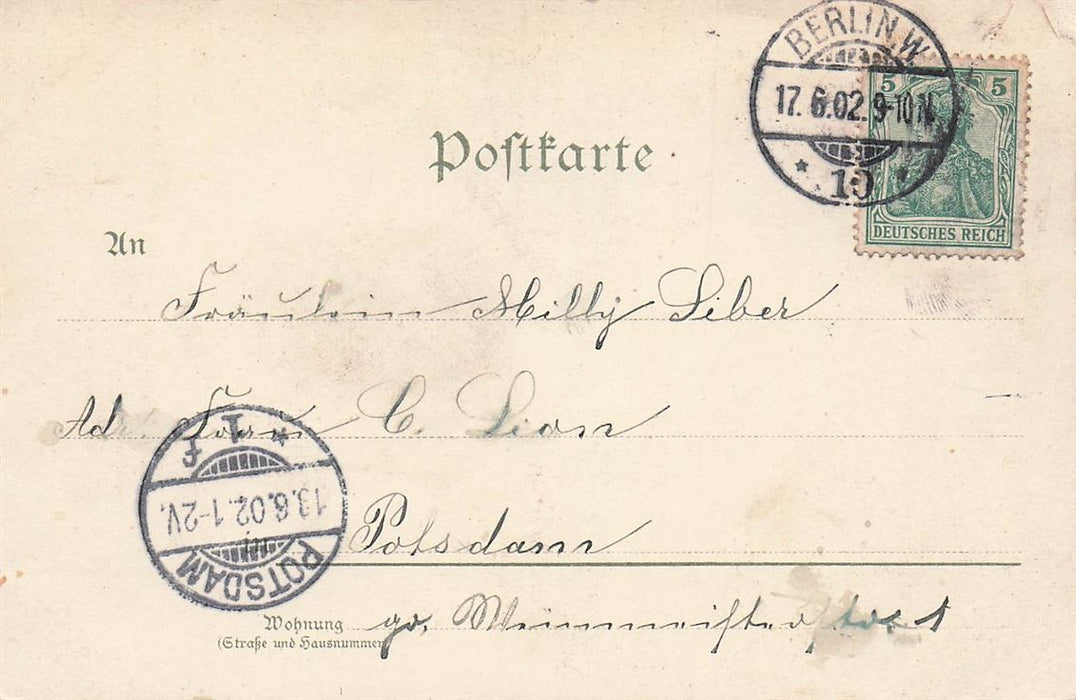 BERLIN W.
17. 6.02. 9-10 N.
* 10 *
5 5
DEUTSCHES REICH
Postkarte
An
Fräulein Milly Liber
Adr. Frau C. Lion
Potsdam
* 1 f
.6.02. 1-2V.
POTSDAM
Wohnung
gr. Weinmeisterstr. 1
(Straße und Hausnummer)